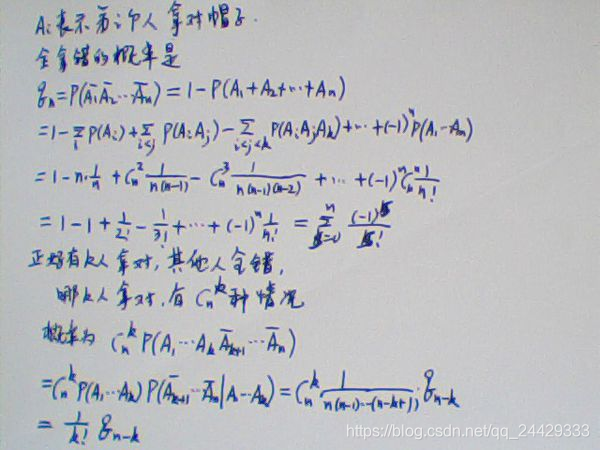 Aᵢ表示第i个人拿对帽子.
全拿错的概率是
qₙ=P(Ā₁Ā₂⋯Āₙ)=1-P(A₁+A₂+⋯+Aₙ)
=1-∑ᵢP(Aᵢ)+∑_{i<j}P(AᵢAⱼ)-∑_{i<j<k}P(AᵢAⱼAₖ)+⋯+(-1)ⁿP(A₁⋯Aₙ)
=1-n·1/n+Cₙ²1/n(n-1)-Cₙ³1/n(n-1)(n-2)+⋯+(-1)ⁿCₙⁿ1/n!
=1-1+1/2!-1/3!+⋯+(-1)ⁿ1/n!=∑_{k=0}^{n}(-1)ᵏ/k!
正好有k人拿对,其他人全错,
哪k人拿对,有Cₙᵏ种情况
概率为Cₙᵏ P(A₁⋯AₖĀₖ₊₁⋯Āₙ)
=CₙᵏP(A₁⋯Aₖ)P(Āₖ₊₁⋯Āₙ|A₁⋯Aₖ)=Cₙᵏ1/n(n-1)⋯(n-k+1)·qₙ₋ₖ
=1/k! qₙ₋ₖ
https://blog.csdn.net/qq_24429333